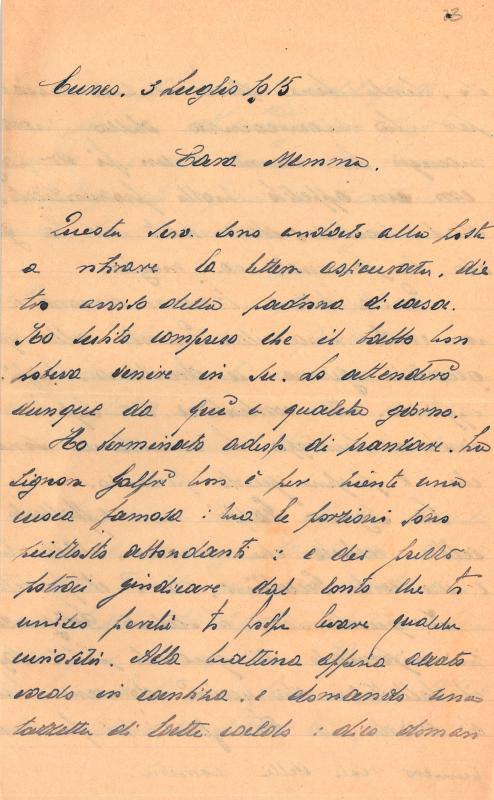 23
Cuneo. 3 Luglio 1915
Cara Mamma.
Questa sera sono andato alla posta
a ritirare la lettera assicurata, die
tro avviso della padrona di casa.
Ho subito compreso che il babbo non
poteva venire in su. Lo attenderò
dunque da qui a qualche giorno.
Ho terminato adesso di pranzare. La
signora Galfrè non è per niente una
cuoca famosa: ma le porzioni sono
piuttosto abbondanti: e dei prezzi
potrai giudicare dal conto che ti
unisco perchè ti possa levare qualche
curiosità. Alla mattina appena alzato
vado in cantina. e domando una
tazzetta di latte caldo: dico doman